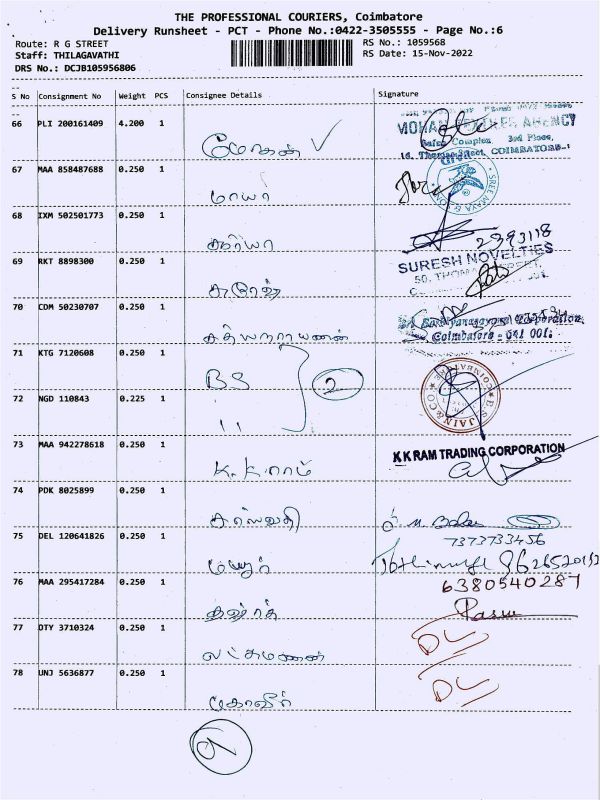 THE PROFESSIONAL COURIERS, Coimbatore
Delivery Runsheet - PCT - Phone No.:0422-3505555 - Page No.:6
Route: R G STREET
RS No.: 1059568
Staff: THILAGAVATHI
RS Date: 15-Nov-2022
DRS No.: DCJB105956806
S No Consignment No Weight PCS Consignee Details Signature
66 PLI 200161409 4.200 1 மோகன்
MOHAN AGENCY
3rd Place,
COIMBATORE-1
67 MAA 858487688 0.250 1 மாயா
SREE MAYA &
68 IXM 502501773 0.250 1 சூர்யா
2393118
69 RKT 8898300 0.250 1 சுரேஷ்
SURESH NOVELTIES
50,
70 CDM 50230707 0.250 1 சத்யநாராயணன்
Corporation,
Coimbatore - 641 001.
71 KTG 7120608 0.250 1 BS
2
72 NGD 110843 0.225 1 ''
JAIN & CO
COIMBATORE
73 MAA 942278618 0.250 1 K.K.ராம்
K K RAM TRADING CORPORATION
74 PDK 8025899 0.250 1 சரஸ்வதி
75 DEL 120641826 0.250 1 மயூர்
7373733456
76 MAA 295417284 0.250 1
6380540287
77 DTY 3710324 0.250 1 லட்சுமணன்
DL
78 UNJ 5636877 0.250 1 மகாவீர்
DL